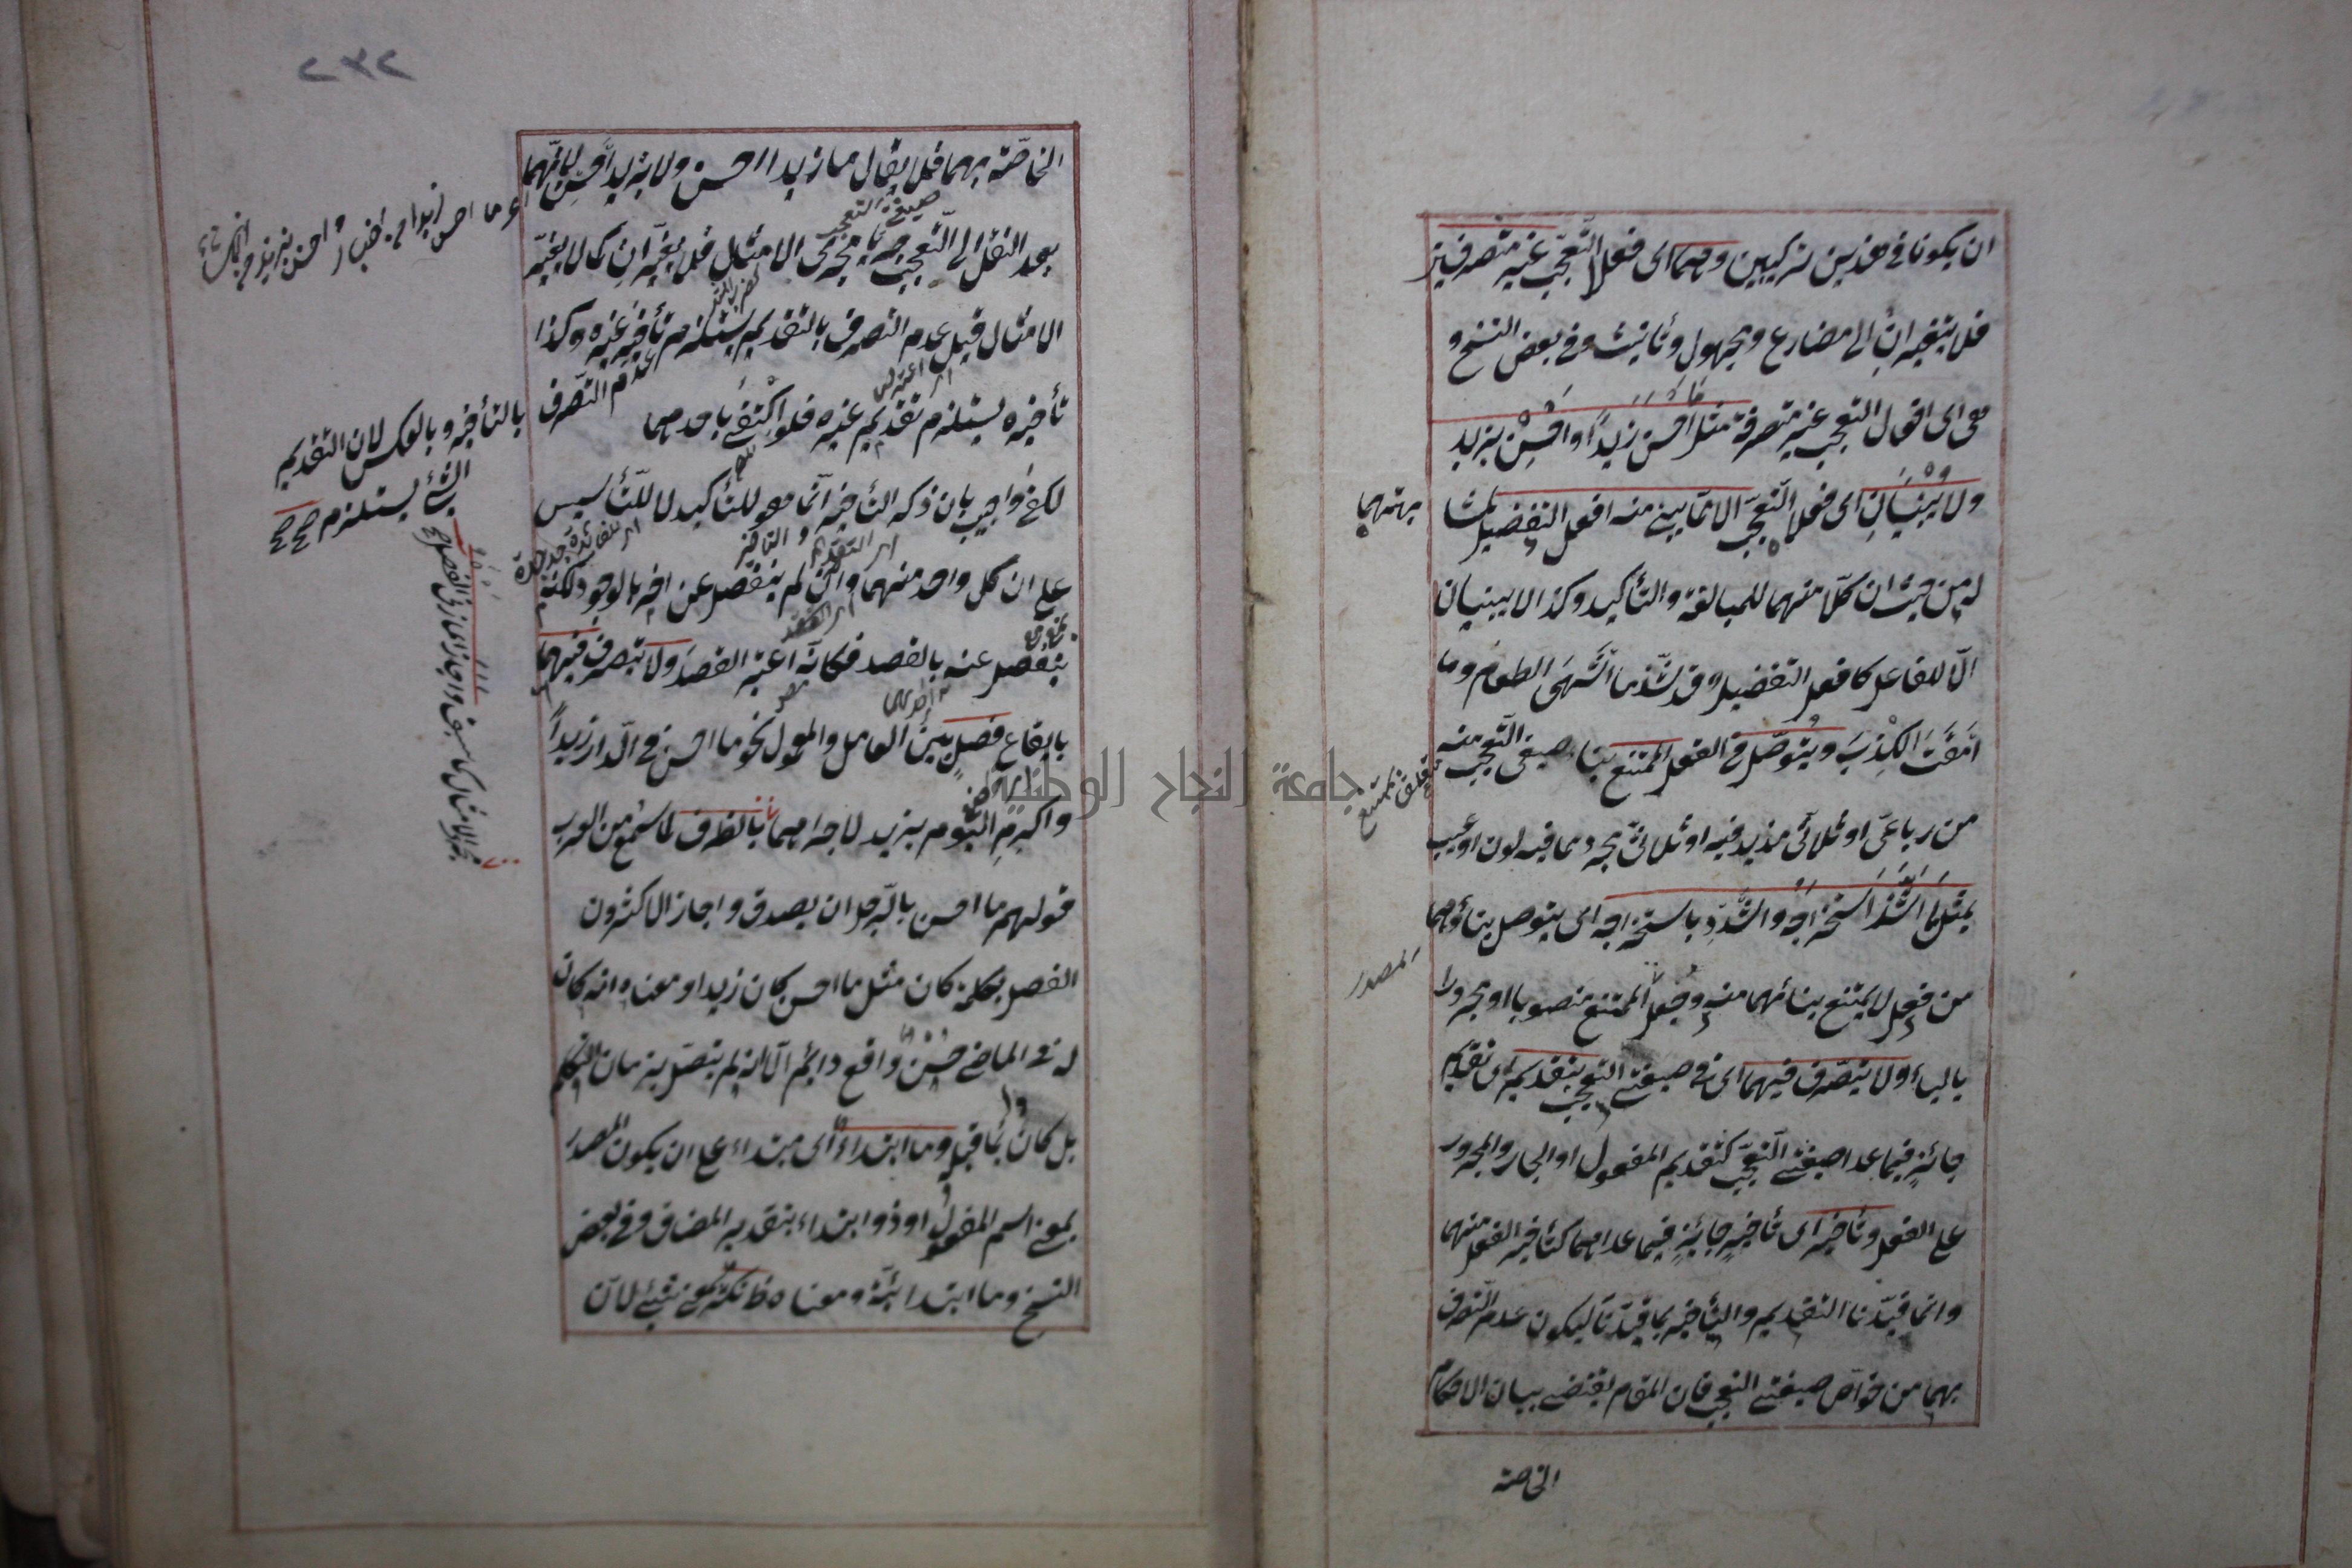 ان يكونا فى هذين تركيبين وهما اى فعلا التّعجّب غير متصرفين
فلا يتغيران الى مضارع ومجهول وتأنيث وفى بعض النسخ و
هى اى افعال التعجب غير متصرفة مثل ما أحسن زيدًا وأحسن بزيد
ولا يُبْنَيَانِ اى فعلا التّعجّب الا مما يبنى منه افعل التفضيل لمشا
بهتهما
له من حيث ان كلّا منهما للمبالغة والتأكيد وكذا لا يبنيان
الّا للفاعل كافعل التفضيل وقد شذّ ما اَشْهَى الطعام وما
اَمْقَتَ الكَذِبَ ويُتوصّل فى الفعل الممتنع بناء صيغتى التّعجّب منه
من رباعىّ او ثلاثىّ مزيد فيه او ثلاثىّ مجرد مما فيه لون او عيب
بمثل مَا اَشَدَّ اسْتِخْرَاجَهُ وَاَشْدِدْ باستخراجه اى يتوصل بنائهما
من فعل لا يمتنع بنائهما منه وجُعِل الممتنع منصوبا او مجرورا
المصدر
بالباء ولا يتصرّف فيهما اى فى صيغتى التعجب بتقديم اى تقديم
جائزٍ فيما عدا صيغتى التّعجّب كتقديم المفعول او الجار والمجرور
على الفعل وتأخير اى تأخير جائزٍ فيما عداهما كتأخير الفعل منهما
وانما قيّدنا التقديم والتأخير بما قيّدنا ليكون عدم التصرف
بهما من خواصّ صيغتى التعجب فان المقام يقتضى بيان الاحكام
الخاصة
٢٣٢
الخاصّة بهما فلا يقال ما زيدا احسن ولا بزيد أحسن لانّهما
صيغة التعجب
بعد النقل الى التّعجب جريا مجرى الامثال فلا يغيّران كما لا يغيّر
الامثال قيل عدم التصرف بالتقديم يستلزم تأخير غيره وكذا
تأخيره يستلزم تقديم غيره فلو اكتفى باحدهما
عدم التّصرف بالتأخير وبالعكس لان التقديم
الشئ يستلزم صح صح
لكفى واجيب بان ذكر التأخير انّما هو للتأكيد لا للتّأسيس
اى التقديم والتأخير
على ان كل واحد منهما وان لم ينفصل عن اخر بالوجود لكنه
اى القصد
ينفصل عنه بالقصد فكانّه اعتبر القصد ولا يتصرف فيهما
بايقاع فصلٍ بين العامل والمعمول نحو ما احسن فى الدّار زيداً
واكرم اليوم بزيد لاجرائهما
بالظرف لما سُمع من العرب
قولهم ما احسن بالرّجل ان يصدق واجاز الاكثرون
الفصل بكلمة كان مثل ما احسن كان زيدا ومعناه انه كان
له فى الماضى حُسْنٌ واقع دائم الّا انه لم يتصل بزمان التكلم
بل كان دائما قبله وما ابتداءٌ اى مبتداء على ان يكون المصدر
بمعنى اسم المفعول او ذو ابتداء بتقدير المضاف وفى بعض
النسخ وما ابتدائيّة ومعناه
نكرة بمعنى شئ لانّ
جامعة النجاح الوطنية